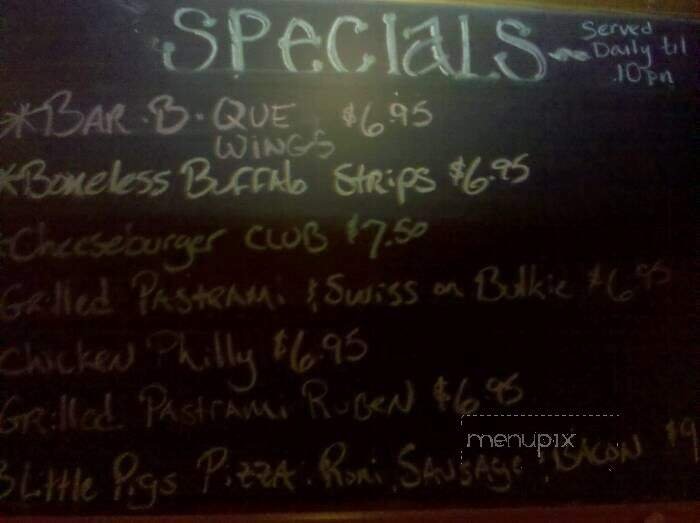 SPecIaLS
Served
Daily til
10pm
*BAR.B.QUE $6.95
WINGS
*Boneless Buffalo Strips $6.95
Cheeseburger CLUB $7.50
Grilled PASTRAMi & Swiss on Bulkie $6.95
Chicken Philly $6.95
Grilled Pastrami RUBEN $6.95
3 Little Pigs PizzA. Roni, SAUSAge, BACON $9
menupix